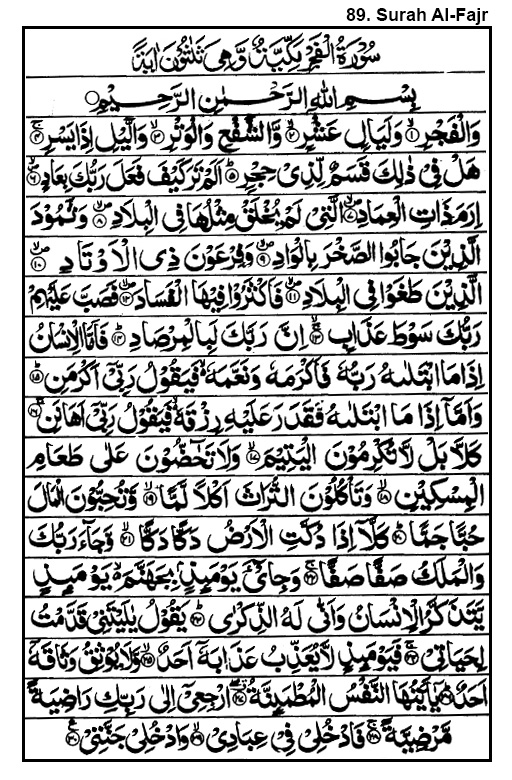 89. Surah Al-Fajr
سُوْرَةُ الْفَجْرِ مَكِّيَّةٌ وَّهِىَ ثَلٰثُوْنَ اٰيَةً
بِسْمِ اللهِ الرَّحْمٰنِ الرَّحِيْمِ
وَالْفَجْرِ ۙ﴿۱﴾ وَلَيَالٍ عَشْرٍ ۙ﴿۲﴾ وَّالشَّفْعِ وَالْوَتْرِ ۙ﴿۳﴾ وَالَّيْلِ اِذَا يَسْرِ ۚ﴿۴﴾
هَلْ فِىْ ذٰلِكَ قَسَمٌ لِّذِىْ حِجْرٍ ﴿۵﴾ اَلَمْ تَرَ كَيْفَ فَعَلَ رَبُّكَ بِعَادٍ ۙ﴿۶﴾
اِرَمَ ذَاتِ الْعِمَادِ ۙ﴿۷﴾ الَّتِىْ لَمْ يُخْلَقْ مِثْلُهَا فِى الْبِلَادِ ۙ﴿۸﴾ وَثَمُوْدَ
الَّذِيْنَ جَابُوا الصَّخْرَ بِالْوَادِ ۙ﴿۹﴾ وَفِرْعَوْنَ ذِى الْاَوْتَادِ ۙ﴿۱۰﴾
الَّذِيْنَ طَغَوْا فِى الْبِلَادِ ۙ﴿۱۱﴾ فَاَكْثَرُوْا فِيْهَا الْفَسَادَ ۙ﴿۱۲﴾ فَصَبَّ عَلَيْهِمْ
رَبُّكَ سَوْطَ عَذَابٍ ۚ﴿۱۳﴾ اِنَّ رَبَّكَ لَبِالْمِرْصَادِ ﴿۱۴﴾ فَاَمَّا الْاِنْسَانُ
اِذَا مَا ابْتَلٰىهُ رَبُّهٗ فَاَكْرَمَهٗ وَنَعَّمَهٗ ۙ فَيَقُوْلُ رَبِّىْ اَكْرَمَنِ ﴿۱۵﴾
وَاَمَّا اِذَا مَا ابْتَلٰىهُ فَقَدَرَ عَلَيْهِ رِزْقَهٗ ۙ فَيَقُوْلُ رَبِّىْ اَهَانَنِ ﴿۱۶﴾
كَلَّا بَلْ لَّا تُكْرِمُوْنَ الْيَتِيْمَ ۙ﴿۱۷﴾ وَلَا تَحٰٓضُّوْنَ عَلٰى طَعَامِ
الْمِسْكِيْنِ ۙ﴿۱۸﴾ وَتَاْكُلُوْنَ التُّرَاثَ اَكْلًا لَّمًّا ۙ﴿۱۹﴾ وَّتُحِبُّوْنَ الْمَالَ
حُبًّا جَمًّا ﴿۲۰﴾ كَلَّاۤ اِذَا دُكَّتِ الْاَرْضُ دَكًّا دَكًّا ۙ﴿۲۱﴾ وَّجَآءَ رَبُّكَ
وَالْمَلَكُ صَفًّا صَفًّا ۚ﴿۲۲﴾ وَجِاىْٓءَ يَوْمَئِذٍۭ بِجَهَنَّمَ ۙ يَوْمَئِذٍ
يَّتَذَكَّرُ الْاِنْسَانُ وَاَنّٰى لَهُ الذِّكْرٰى ﴿۲۳﴾ يَقُوْلُ يٰلَيْتَنِىْ قَدَّمْتُ
لِحَيَاتِىْ ۚ﴿۲۴﴾ فَيَوْمَئِذٍ لَّا يُعَذِّبُ عَذَابَهٗۤ اَحَدٌ ۙ﴿۲۵﴾ وَّلَا يُوْثِقُ وَثَاقَهٗۤ
اَحَدٌ ﴿۲۶﴾ يٰۤاَيَّتُهَا النَّفْسُ الْمُطْمَئِنَّةُ ﴿۲۷﴾ ارْجِعِىْۤ اِلٰى رَبِّكِ رَاضِيَةً
مَّرْضِيَّةً ۚ﴿۲۸﴾ فَادْخُلِىْ فِىْ عِبٰدِىْ ۙ﴿۲۹﴾ وَادْخُلِىْ جَنَّتِىْ ﴿۳۰﴾